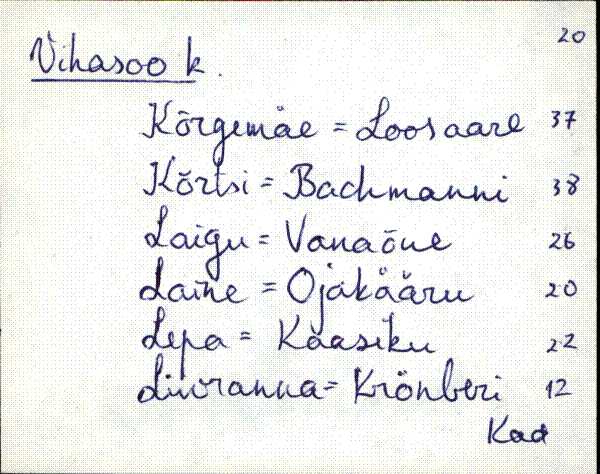 20
Vihasoo k.
Kõrgemäe = Loosaare 37
Kõrtsi = Bachmanni 38
Laigu = Vanaõue 26
Laine = Ojakääru 20
Lepa = Kaasiku 22
Liivranna = Krönberi 12
Kad